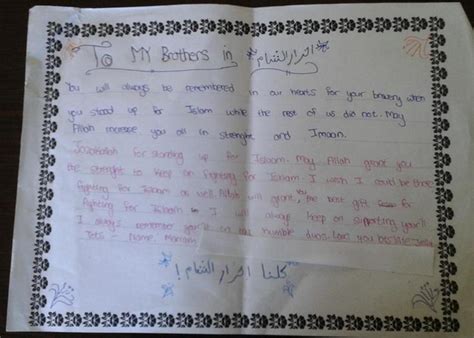 To My Brothers in احرار الشام
You will always be remembered in our hearts for your bravery when
you stood up for Islam while the rest of us did not. May
Allah increase you all in strenght and Imaan.
for standing up for Islaam. May Allah grant you
the strenght to keep on fighting for Islam. I wish I could be there
fighting for Islaam as well. Allah will grant you the best gift for
fighting for I will always keep on supporting
I always remember in humble duas. Love you
Name, Mariam
كلنا احرار الشام!